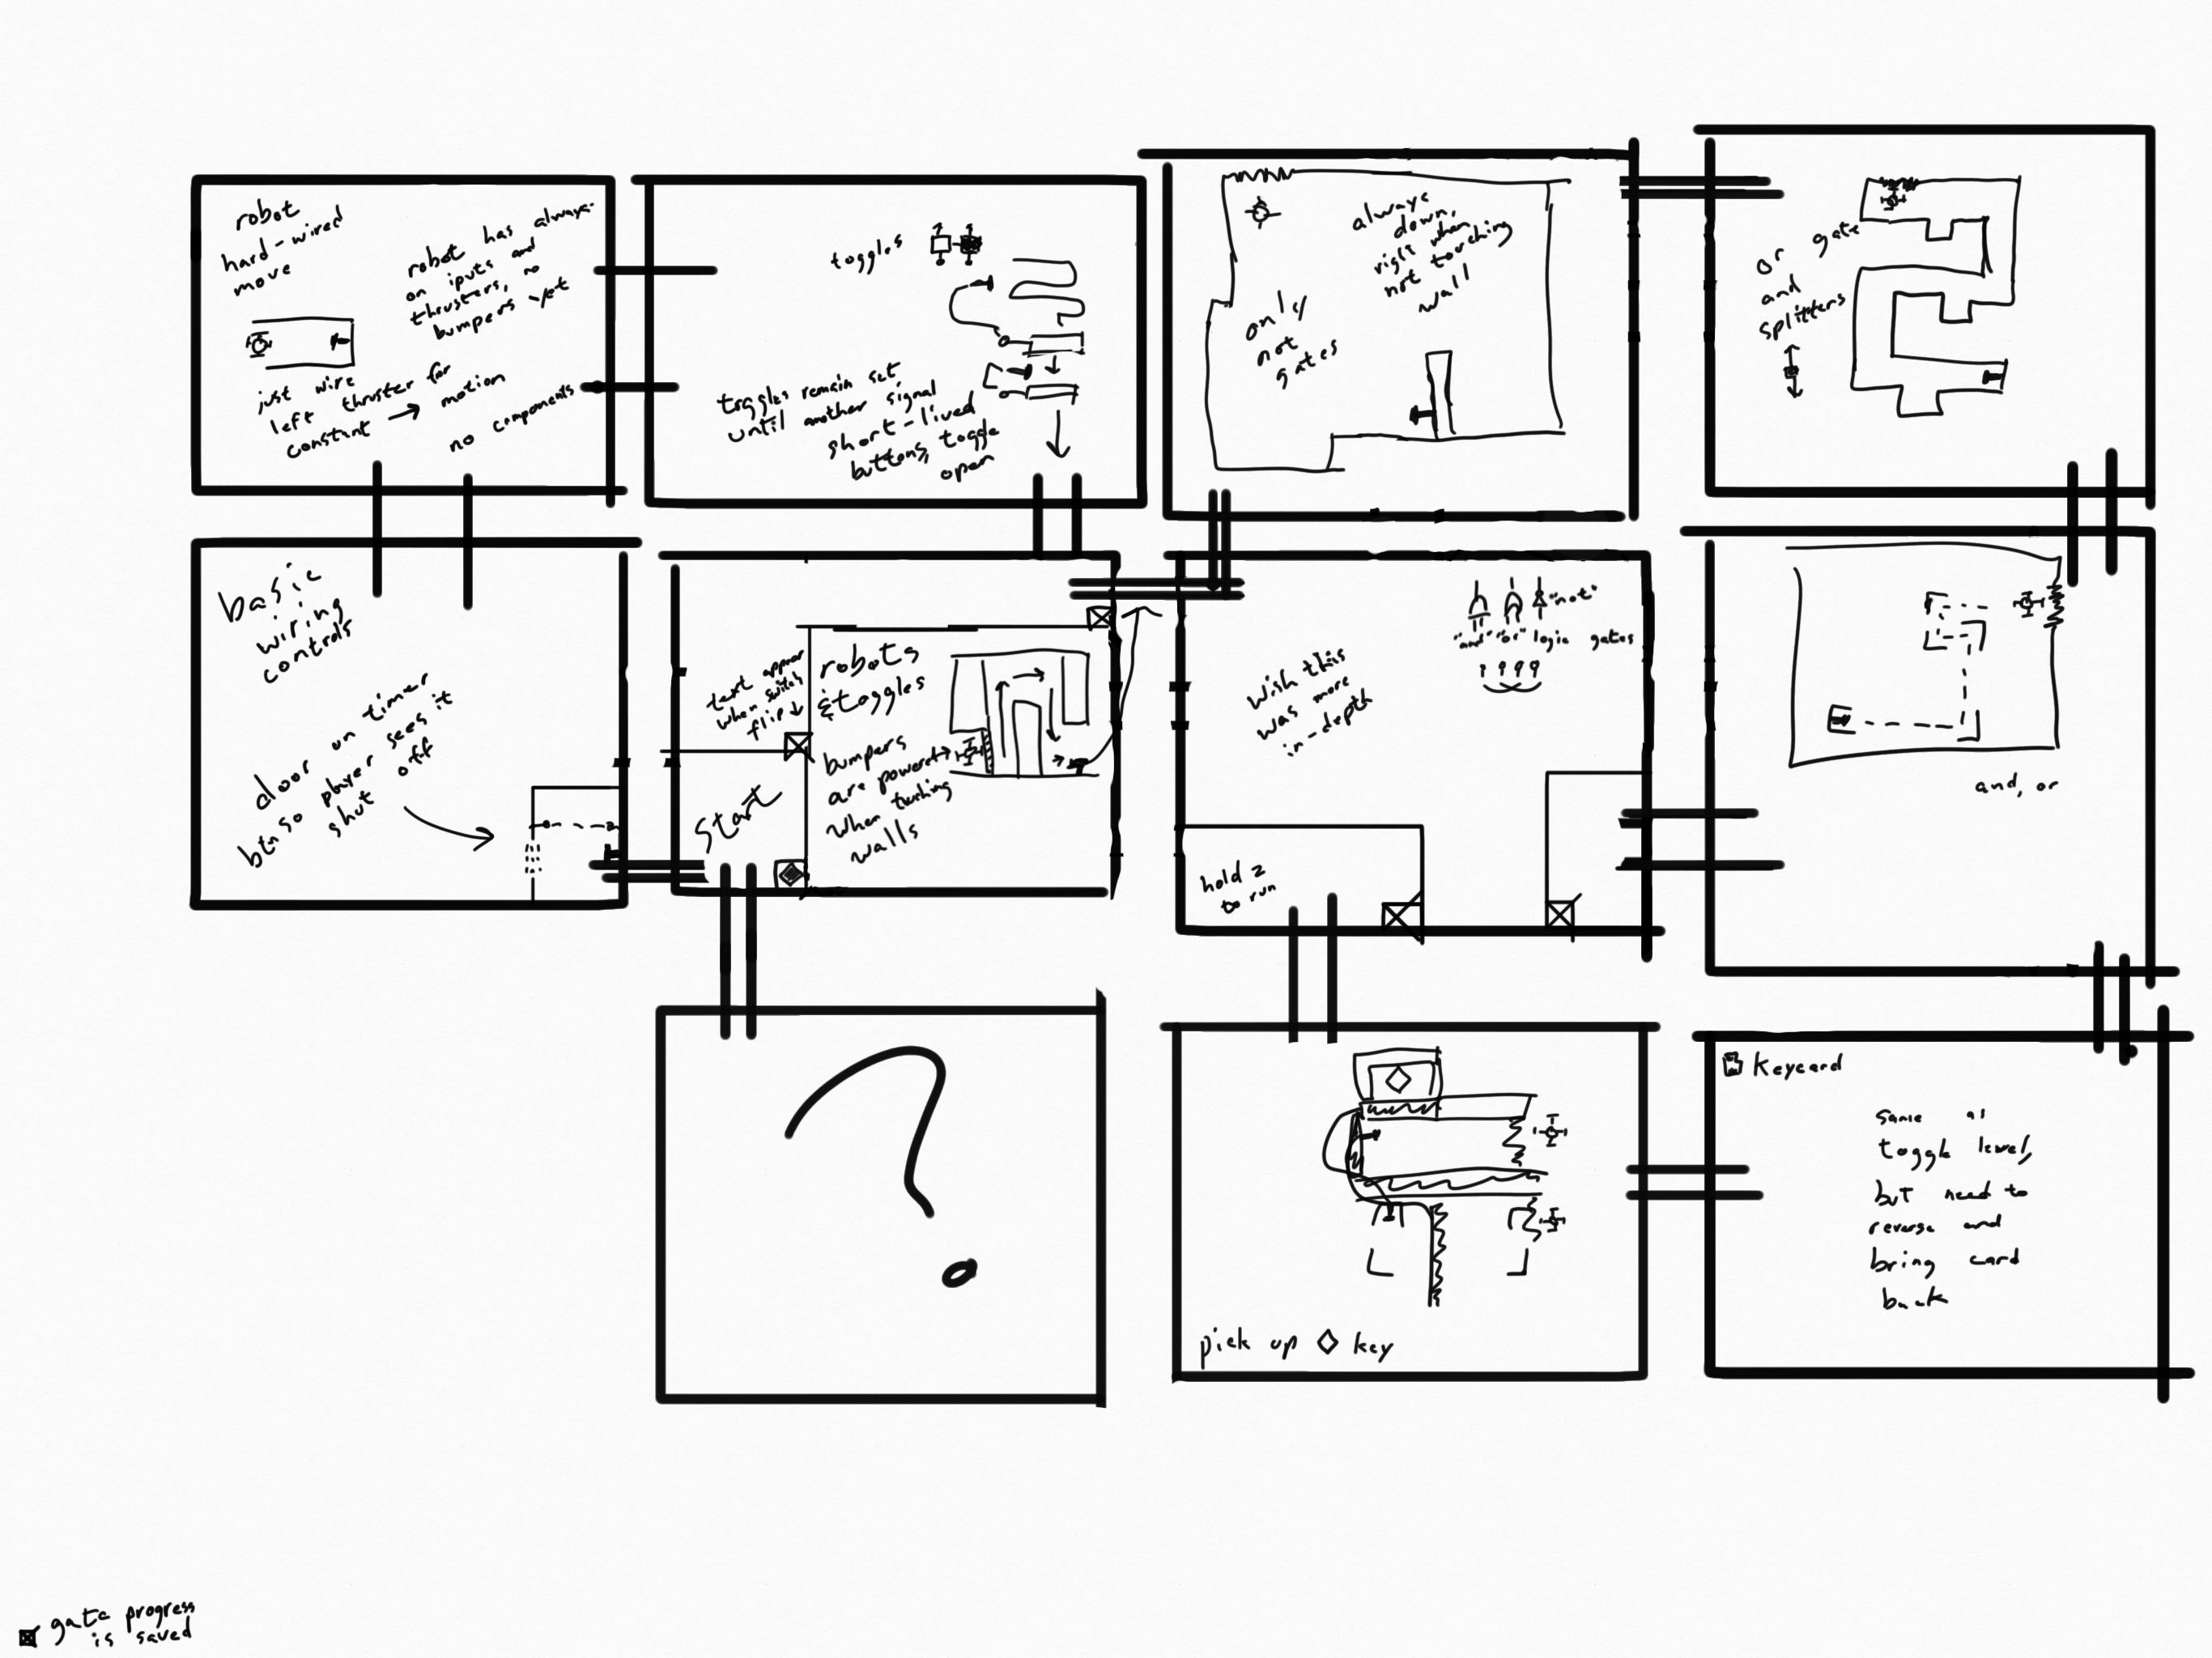 robot
hard-wired
move
robot has always-
on iputs and
thrusters, no
bumpers yet
just wire
left thruster for
constant → motion
no components
toggles
toggles remain set
until another signal
short-lived
buttons, toggle
open
always
down,
right when
not touching
wall
only
not
gates
or gate
and
splitters
basic
wiring
controls
door on timer
btn so player sees it
shut off
text appear
when switch
flip ↓
robots
& toggles
bumpers
are powered →
when tuching
walls
start
"not"
"and" "or" logic gates
wish this
was more
in-depth
hold z
to run
and, or
?
pick up ◇ key
keycard
same as
toggle level,
but need to
reverse and
bring card
back
gate progress
is saved